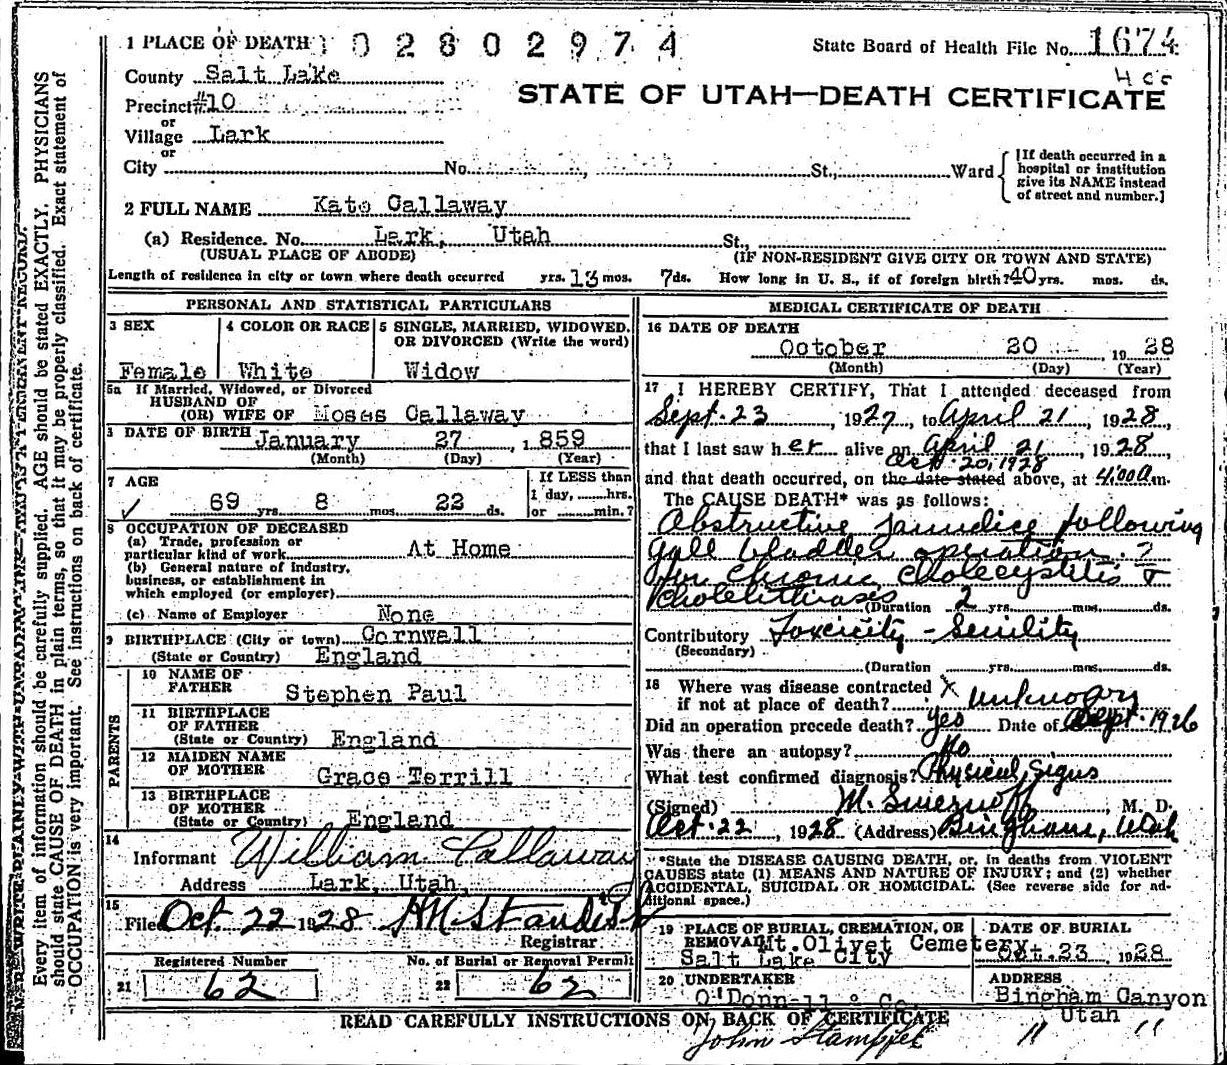 1 PLACE OF DEATH 0 2 8 0 2 9 7 4
State Board of Health File No. 1674
County Salt Lake
4 c c
Precinct #10
STATE OF UTAH—DEATH CERTIFICATE
or
Village Lark
or
City No. St., Ward
[If death occurred in a
hospital or institution
give its NAME instead
of street and number.]
2 FULL NAME Kate Callaway
(a) Residence. No. Lark, Utah St.,
(USUAL PLACE OF ABODE) (IF NON-RESIDENT GIVE CITY OR TOWN AND STATE)
Length of residence in city or town where death occurred yrs. 13 mos. 7 ds. How long in U. S., if of foreign birth? 40 yrs. mos. ds.
PERSONAL AND STATISTICAL PARTICULARS
3 SEX
Female
4 COLOR OR RACE
White
5 SINGLE, MARRIED, WIDOWED,
OR DIVORCED (Write the word)
Widow
5a If Married, Widowed, or Divorced
HUSBAND OF
(OR) WIFE OF Moses Callaway
DATE OF BIRTH January 27, 1859
(Month) (Day) (Year)
7 AGE
69 yrs. 8 mos. 22 ds.
If LESS than
1 day, hrs.
or min.?
8 OCCUPATION OF DECEASED
(a) Trade, profession or
particular kind of work At Home
(b) General nature of industry,
business, or establishment in
which employed (or employer)
(c) Name of Employer None
9 BIRTHPLACE (City or town) Cornwall
(State or Country) England
PARENTS
10 NAME OF
FATHER Stephen Paul
11 BIRTHPLACE
OF FATHER
(State or Country) England
12 MAIDEN NAME
OF MOTHER Grace Terrill
13 BIRTHPLACE
OF MOTHER
(State or Country) England
14
Informant William Callaway
Address Lark, Utah,
15
Filed Oct. 22 1928 H M Standish
Registrar
Registered Number No. of Burial or Removal Permit
21 62 22 62
MEDICAL CERTIFICATE OF DEATH
16 DATE OF DEATH
October 20 1928
(Month) (Day) (Year)
17 I HEREBY CERTIFY, That I attended deceased from
Sept. 23, 1927, to April 21, 1928,
that I last saw her alive on April 21, 1928,
Oct. 20, 1928
and that death occurred, on the date stated above, at 4:00 a.m.
The CAUSE DEATH* was as follows:
Obstructive jaundice following
gall bladder operation. ?
for chronic cholecystitis &
cholelithiases (Duration 2 yrs. mos. ds.
Contributory Toxicity - Senility
(Secondary)
(Duration yrs. mos. ds.
18 Where was disease contracted
if not at place of death? X unknown
Did an operation precede death? Yes Date of Sept. 1926
Was there an autopsy? No
What test confirmed diagnosis? Physical signs
(Signed) M. , M. D.
Oct. 22, 1928 (Address) Bingham, Utah
*State the DISEASE CAUSING DEATH, or, in deaths from VIOLENT
CAUSES state (1) MEANS AND NATURE OF INJURY; and (2) whether
ACCIDENTAL, SUICIDAL OR HOMICIDAL. (See reverse side for ad-
ditional space.)
19 PLACE OF BURIAL, CREMATION, OR
REMOVAL Mt. Olivet Cemetery
Salt Lake City
DATE OF BURIAL
Oct. 23 1928
20 UNDERTAKER
O'Donnell & Co.
ADDRESS
Bingham Canyon
Utah
READ CAREFULLY INSTRUCTIONS ON BACK OF CERTIFICATE
John " "
Every item of information should be carefully supplied. AGE should be stated EXACTLY. PHYSICIANS
should state CAUSE OF DEATH in plain terms, so that it may be properly classified. Exact statement of
OCCUPATION is very important. See instructions on back of certificate.